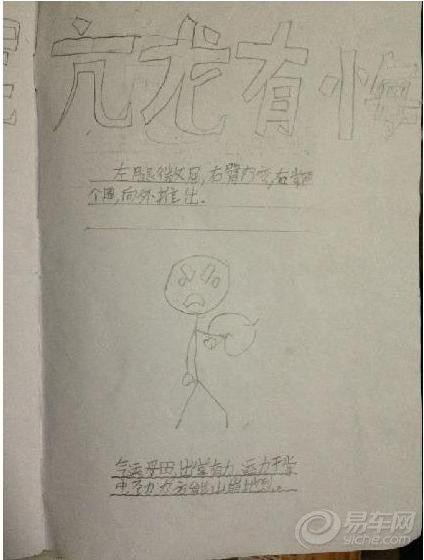 亢龙有悔
左腿微屈,右臂内弯,右掌画
个圆,向外推出。
气运丹田,出掌有力,运力于掌
中,劲力方能山崩地裂。
易车网
yiche.com